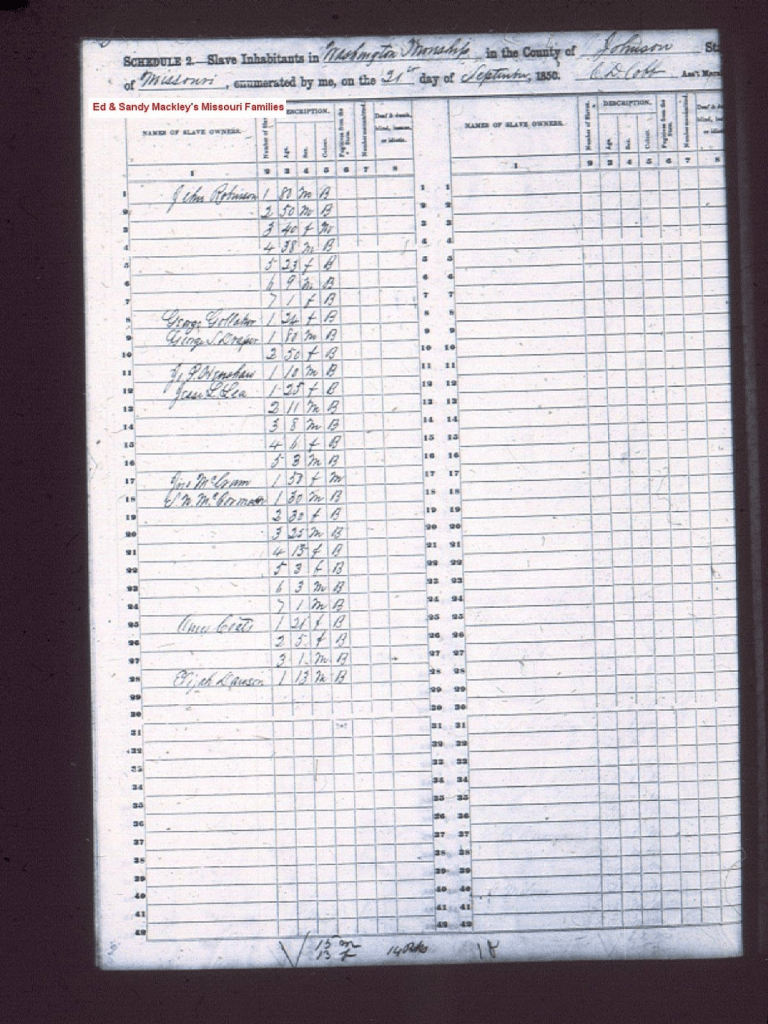 SCHEDULE 2. Slave Inhabitants in Washington Township in the County of Johnson St
of Missouri, enumerated by me, on the 21st day of September, 1850. C D Cobb Ass't Mars
Ed & Sandy Mackley's Missouri Families
NAMES OF SLAVE OWNERS. Number of Slaves. DESCRIPTION. Age. Sex. Colour. Fugitives from the State. Number manumitted. Deaf & dumb, blind, insane, or idiotic. NAMES OF SLAVE OWNERS. Number of Slaves. DESCRIPTION. Age. Sex. Colour. Fugitives from the State. Number manumitted. Deaf & d blind, or idi
1 2 3 4 5 6 7 8 1 2 3 4 5 6 7 8
1 John Robinson 1 80 m B 1 1
2 2 50 m B 2 2
3 3 40 f m 3 3
4 4 38 m B 4 4
5 5 23 f B 5 5
6 6 9 m B 6 6
7 7 1 f B 7 7
8 George 1 24 f B 8 8
9 George S Draper 1 80 m B 9 9
10 2 50 f B 10 10
11 1 10 m B 11 11
12 Jesse L Lea 1 25 f B 12 12
13 2 11 m B 13 13
14 3 8 m B 14 14
15 4 6 f B 15 15
16 5 3 m B 16 16
17 1 50 f m 17 17
18 1 30 m B 18 18
19 2 30 f B 19 19
20 3 25 m B 20 20
21 4 13 f B 21 21
22 5 3 f B 22 22
23 6 3 m B 23 23
24 7 1 m B 24 24
25 Coats 1 26 f B 25 25
26 2 5 f B 26 26
27 3 1 m B 27 27
28 Elijah Dawson 1 13 m B 28 28
29 29 29
30 30 30
31 31 31
32 32 32
33 33 33
34 34 34
35 35 35
36 36 36
37 37 37
38 38 38
39 39 39
40 40 40
41 41 41
42 42 42
15 m
13 f